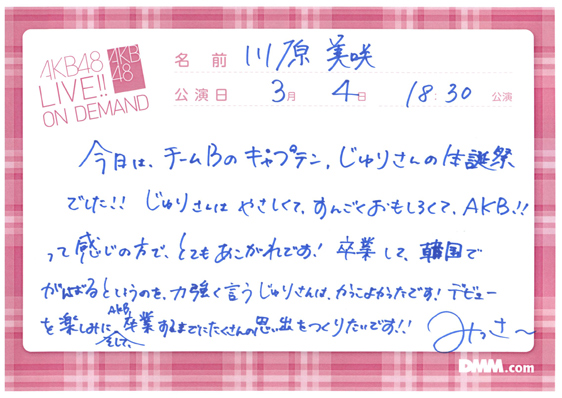 AKB48
LIVE!!
ON DEMAND
AKB
48
名前 川原美咲
公演日 3月 4日 18:30 公演
今日は、チームBのキャプテン、じゅりさんの生誕祭
でした!! じゅりさんは やさしくて、すんごくおもしろくて、AKB!!
って感じの方で、とてもあこがれです! 卒業して、韓国で
がんばるというのを、力強く言うじゅりさんは、かっこよかったです! デビュー
を楽しみに そして、AKB卒業するまでにたくさんの思い出をつくりたいです!! みっさ〜
DMM.com